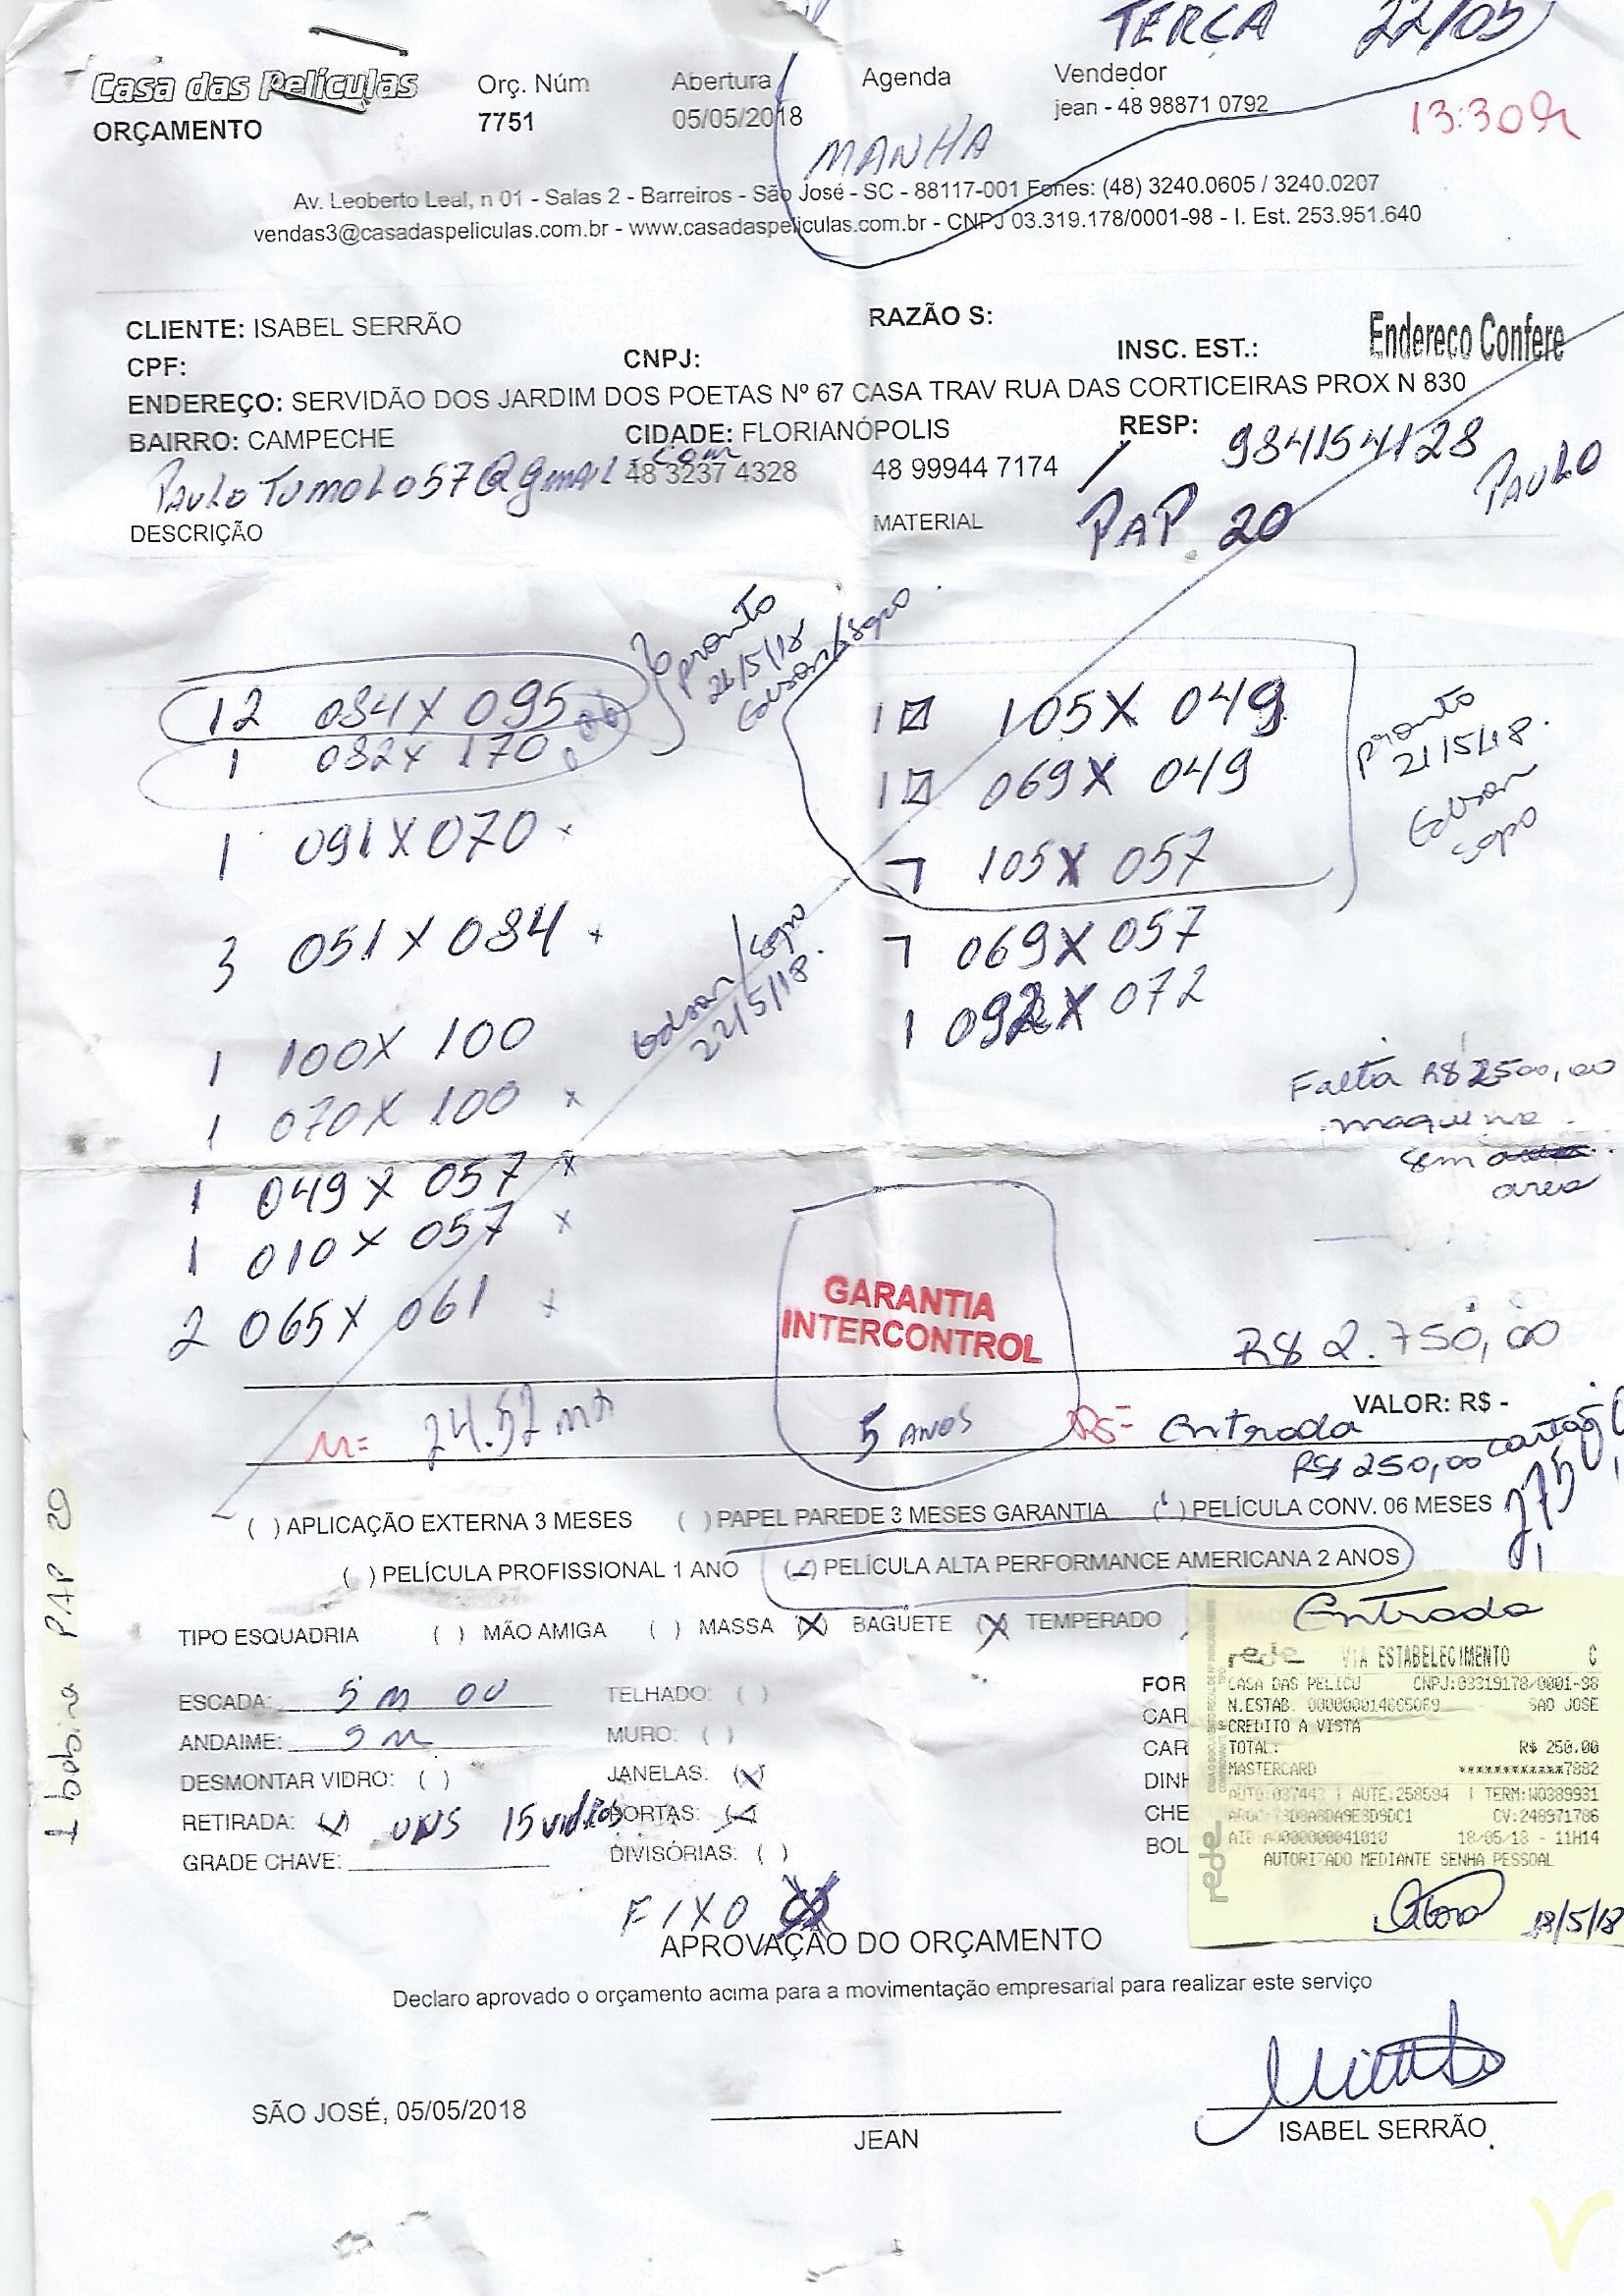 TERÇA 22/05
Casa das Películas
ORÇAMENTO
Orç. Núm
7751
Abertura
05/05/2018
Agenda
MANHA
Vendedor
jean - 48 98871 0792
13:30h
Av. Leoberto Leal, n 01 - Salas 2 - Barreiros - São José - SC - 88117-001 Fones: (48) 3240.0605 / 3240.0207
vendas3@casadaspeliculas.com.br - www.casadaspeliculas.com.br - CNPJ 03.319.178/0001-98 - I. Est. 253.951.640
CLIENTE: ISABEL SERRÃO
RAZÃO S:
CPF:
CNPJ:
INSC. EST.:
Endereco Confere
ENDEREÇO: SERVIDÃO DOS JARDIM DOS POETAS Nº 67 CASA TRAV RUA DAS CORTICEIRAS PROX N 830
BAIRRO: CAMPECHE
CIDADE: FLORIANÓPOLIS
RESP:
984154128
PAULO
PAULO TUMOLO57@gmail.com
48 3237 4328
48 99944 7174
DESCRIÇÃO
MATERIAL
PAP. 20
12 084X095
1 082X170
pronto
21/5/18
Edson/Sapo
1 091X070 x
3 051X084 x
1 100X100
1 070X100 x
1 049X057 x
1 010X057 x
2 065X061 x
Edson/Sapo
22/5/18.
105X049
069X049
7 105X057
7 069X057
1 092X072
pronto
21/5/18.
Edson
Sapo
Falta R$ 2500,00
maquina
sem
area
GARANTIA
INTERCONTROL
5 ANOS
R$ 2.750,00
VALOR: R$ -
M= 24.52 m
R$= Entrada
R$ 250,00 cartão
( ) APLICAÇÃO EXTERNA 3 MESES ( ) PAPEL PAREDE 3 MESES GARANTIA ( ) PELÍCULA CONV. 06 MESES
( ) PELÍCULA PROFISSIONAL 1 ANO ( ) PELÍCULA ALTA PERFORMANCE AMERICANA 2 ANOS
TIPO ESQUADRIA ( ) MÃO AMIGA ( ) MASSA (X) BAGUETE (X) TEMPERADO
1 bobina PAP 20
ESCADA: 5 m OU
ANDAIME: 9 m
DESMONTAR VIDRO: ( )
RETIRADA: UNS 15 vidros
GRADE CHAVE:
TELHADO: ( )
MURO: ( )
JANELAS: (X)
PORTAS:
DIVISÓRIAS: ( )
FIXO
FOR
CAR
CAR
DINH
CHE
BOL
Entrada
rede VIA ESTABELECIMENTO C
CASA DAS PELICU CNPJ:03319178/0001-98
N.ESTAB. 000000014665069 SAO JOSE
CREDITO A VISTA
TOTAL: R$ 250.00
MASTERCARD ************7882
AUTO:037443 | AUTE:258594 | TERM:W0389931
CV:248971786
18/05/18 - 11H14
AUTORIZADO MEDIANTE SENHA PESSOAL
rede
18/5/18
APROVAÇÃO DO ORÇAMENTO
Declaro aprovado o orçamento acima para a movimentação empresarial para realizar este serviço
SÃO JOSÉ, 05/05/2018
JEAN
ISABEL SERRÃO